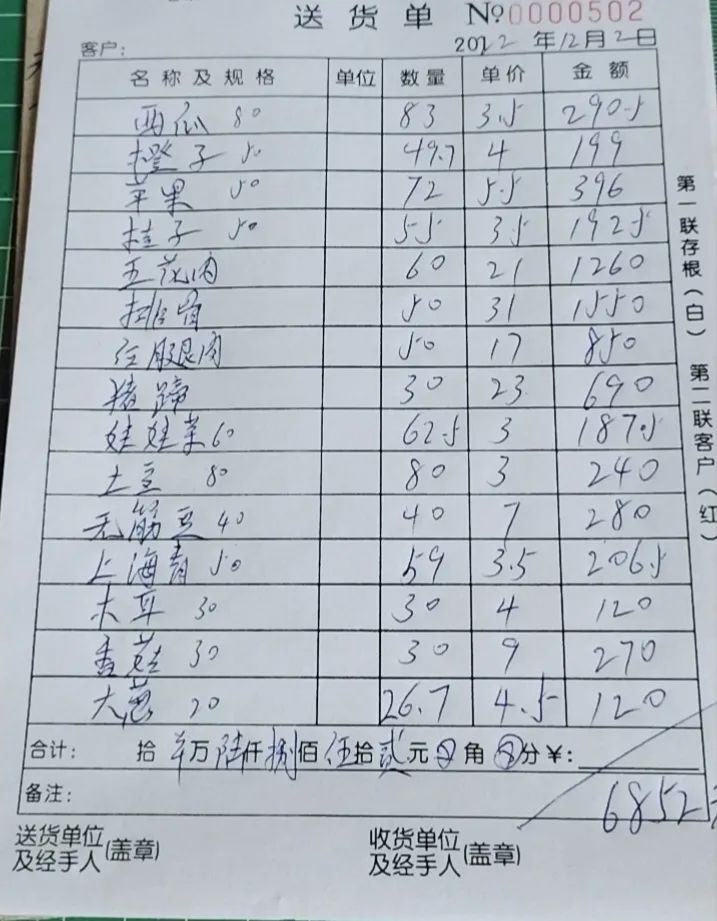 送货单 No.0000502
客户: 2022年12月2日
名称及规格 单位 数量 单价 金额
西瓜 80 83 3.5 290.5
橙子 50 49.7 4 199
苹果 50 72 5.5 396
桔子 50 55 3.5 192.5
五花肉 60 21 1260
排骨 50 31 1550
后腿肉 50 17 850
猪蹄 30 23 690
娃娃菜 60 62.5 3 187.5
土豆 80 80 3 240
无筋豆 40 40 7 280
上海青 50 59 3.5 206.5
木耳 30 30 4 120
香菇 30 30 9 270
大葱 20 26.7 4.5 120
合计: 拾 万陆仟捌佰伍拾贰元 角 分¥:
备注: 6852
送货单位及经手人(盖章)
收货单位及经手人(盖章)
第一联存根(白) 第二联客户(红)